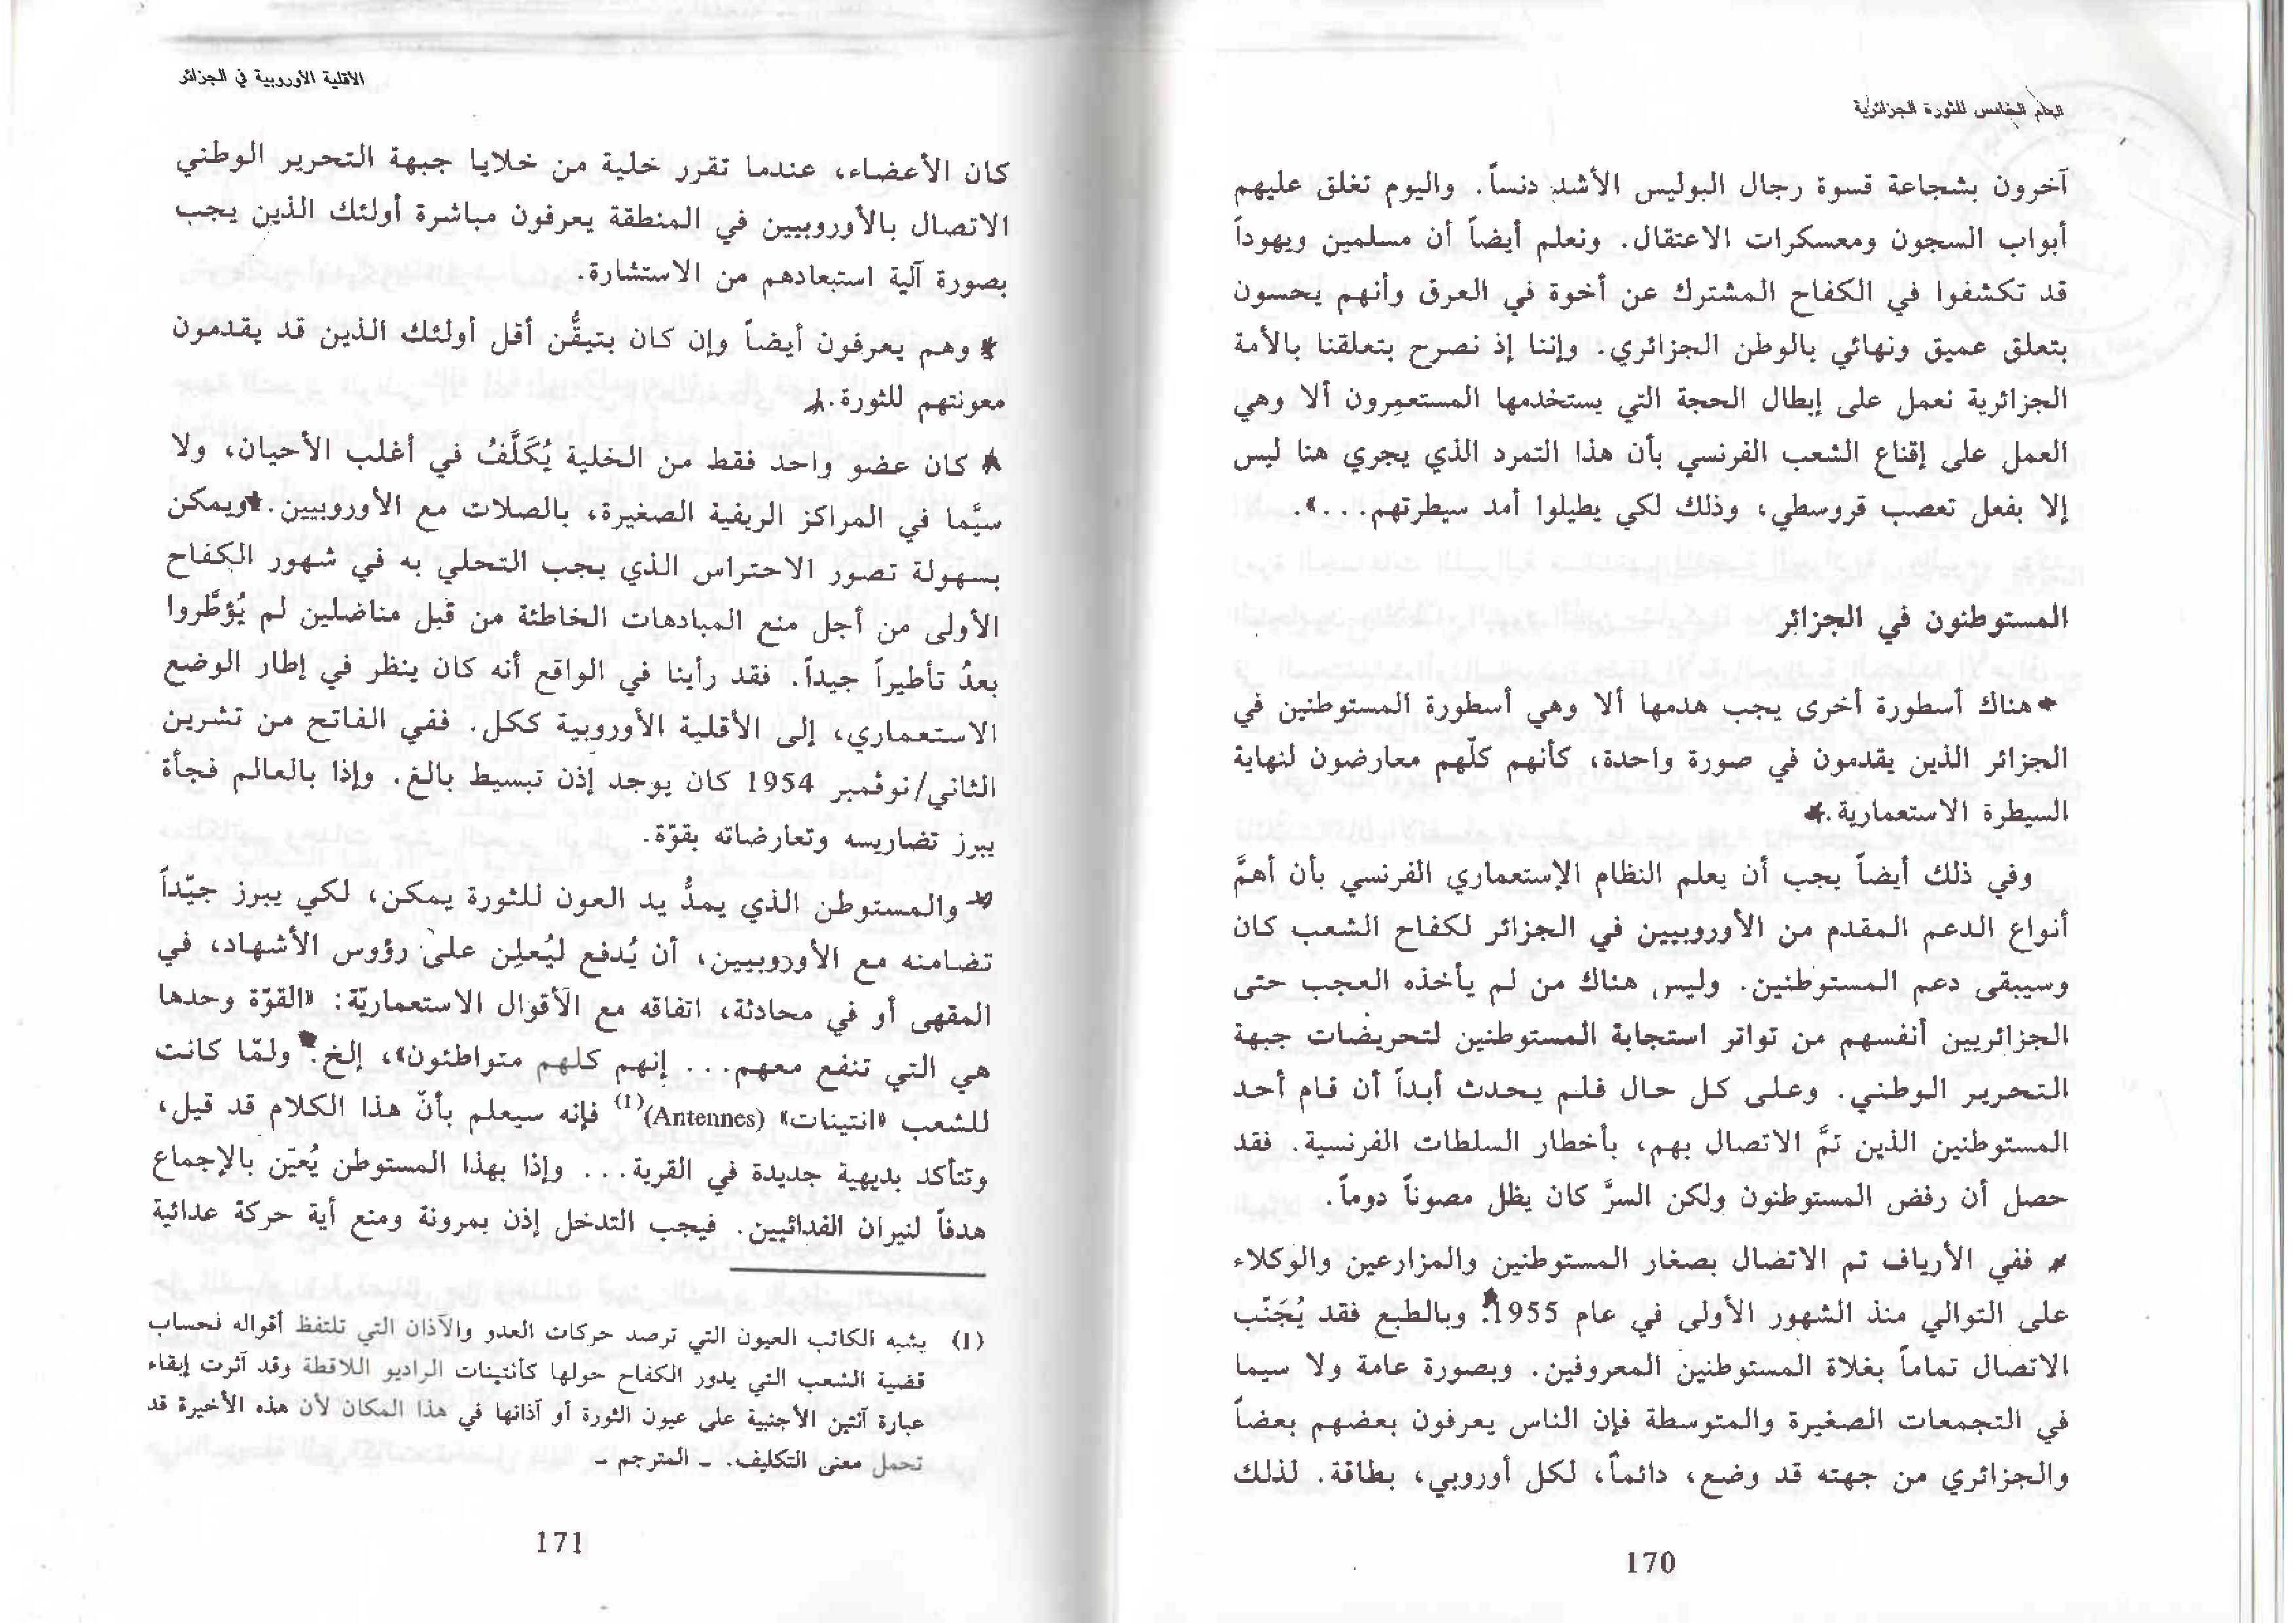 العام الخامس للثورة الجزائرية
آخرون بشجاعة قسوة رجال البوليس الأشد دنساً. واليوم تغلق عليهم
أبواب السجون ومعسكرات الاعتقال. ونعلم أيضاً أن مسلمين ويهوداً
قد تكشفوا في الكفاح المشترك عن أخوة في العرق وأنهم يحسون
بتعلق عميق ونهائي بالوطن الجزائري. وإننا إذ نصرح بتعلقنا بالأمة
الجزائرية نعمل على إبطال الحجة التي يستخدمها المستعمِرون ألا وهي
العمل على إقناع الشعب الفرنسي بأن هذا التمرد الذي يجري هنا ليس
إلا بفعل تعصب قروسطي، وذلك لكي يطيلوا أمد سيطرتهم...».
المستوطنون في الجزائر
* هناك أسطورة أخرى يجب هدمها ألا وهي أسطورة المستوطنين في
الجزائر الذين يقدمون في صورة واحدة، كأنهم كلّهم معارضون لنهاية
السيطرة الاستعمارية.*
وفي ذلك أيضاً يجب أن يعلم النظام الإستعماري الفرنسي بأن أهمَّ
أنواع الدعم المقدم من الأوروبيين في الجزائر لكفاح الشعب كان
وسيبقى دعم المستوطنين. وليس هناك من لم يأخذه العجب حتى
الجزائريين أنفسهم من تواتر استجابة المستوطنين لتحريضات جبهة
التحرير الوطني. وعلى كل حال فلم يحدث أبداً أن قام أحد
المستوطنين الذين تمَّ الاتصال بهم، بأخطار السلطات الفرنسية. فقد
حصل أن رفض المستوطنون ولكن السرَّ كان يظل مصوناً دوماً.
* ففي الأرياف تم الاتصال بصغار المستوطنين والمزارعين والوكلاء
على التوالي منذ الشهور الأولى في عام 1955.* وبالطبع فقد يُجَنّب
الاتصال تماماً بغلاة المستوطنين المعروفين. وبصورة عامة ولا سيما
في التجمعات الصغيرة والمتوسطة فإن الناس يعرفون بعضهم بعضاً
والجزائري من جهته قد وضع، دائماً، لكل أوروبي، بطاقة. لذلك
170
الأقلية الأوروبية في الجزائر
كان الأعضاء، عندما تقرر خلية من خلايا جبهة التحرير الوطني
الاتصال بالأوروبيين في المنطقة يعرفون مباشرة أولئك الذين يجب
بصورة آلية استبعادهم من الاستشارة.
* وهم يعرفون أيضاً وإن كان بتيقُّن أقل أولئك الذين قد يقدمون
معونتهم للثورة.
* كان عضو واحد فقط من الخلية يُكَلَّفُ في أغلب الأحيان، ولا
سيَّما في المراكز الريفية الصغيرة، بالصلات مع الأوروبيين.* ويمكن
بسهولة تصور الاحتراس الذي يجب التحلي به في شهور الكفاح
الأولى من أجل منع المبادهات الخاطئة من قبل مناضلين لم يُؤطَّروا
بعدُ تأطيراً جيداً. فقد رأينا في الواقع أنه كان ينظر في إطار الوضع
الاستعماري، إلى الأقلية الأوروبية ككل. ففي الفاتح من تشرين
الثاني/نوڤمبر 1954 كان يوجد إذن تبسيط بالغ. وإذا بالعالم فجأة
يبرز تضاريسه وتعارضاته بقوّة.
* والمستوطن الذي يمدُّ يد العون للثورة يمكن، لكي يبرز جيّداً
تضامنه مع الأوروبيين، أن يُدفع ليُعلِن على رؤوس الأشهاد، في
المقهى أو في محادثة، اتفاقه مع الأقوال الاستعماريّة: «القوّة وحدها
هي التي تنفع معهم... إنهم كلهم متواطئون»، إلخ.* ولمّا كانت
للشعب «انتينات» (Antennes)(1) فإنه سيعلم بأنّ هذا الكلام قد قيل،
وتتأكد بديهية جديدة في القرية... وإذا بهذا المستوطن يُعيّن بالإجماع
هدفاً لنيران الفدائيين. فيجب التدخل إذن بمرونة ومنع أية حركة عدائية
(1) يشبه الكاتب العيون التي ترصد حركات العدو والآذان التي تلتفظ أقواله لحساب
قضية الشعب التي يدور الكفاح حولها كأنتينات الراديو اللاقطة وقد آثرت إبقاء
عبارة آنتين الأجنبية على عيون الثورة أو آذانها في هذا المكان لأن هذه الأخيرة قد
تحمل معنى التكليف. ـ المترجم ـ
171